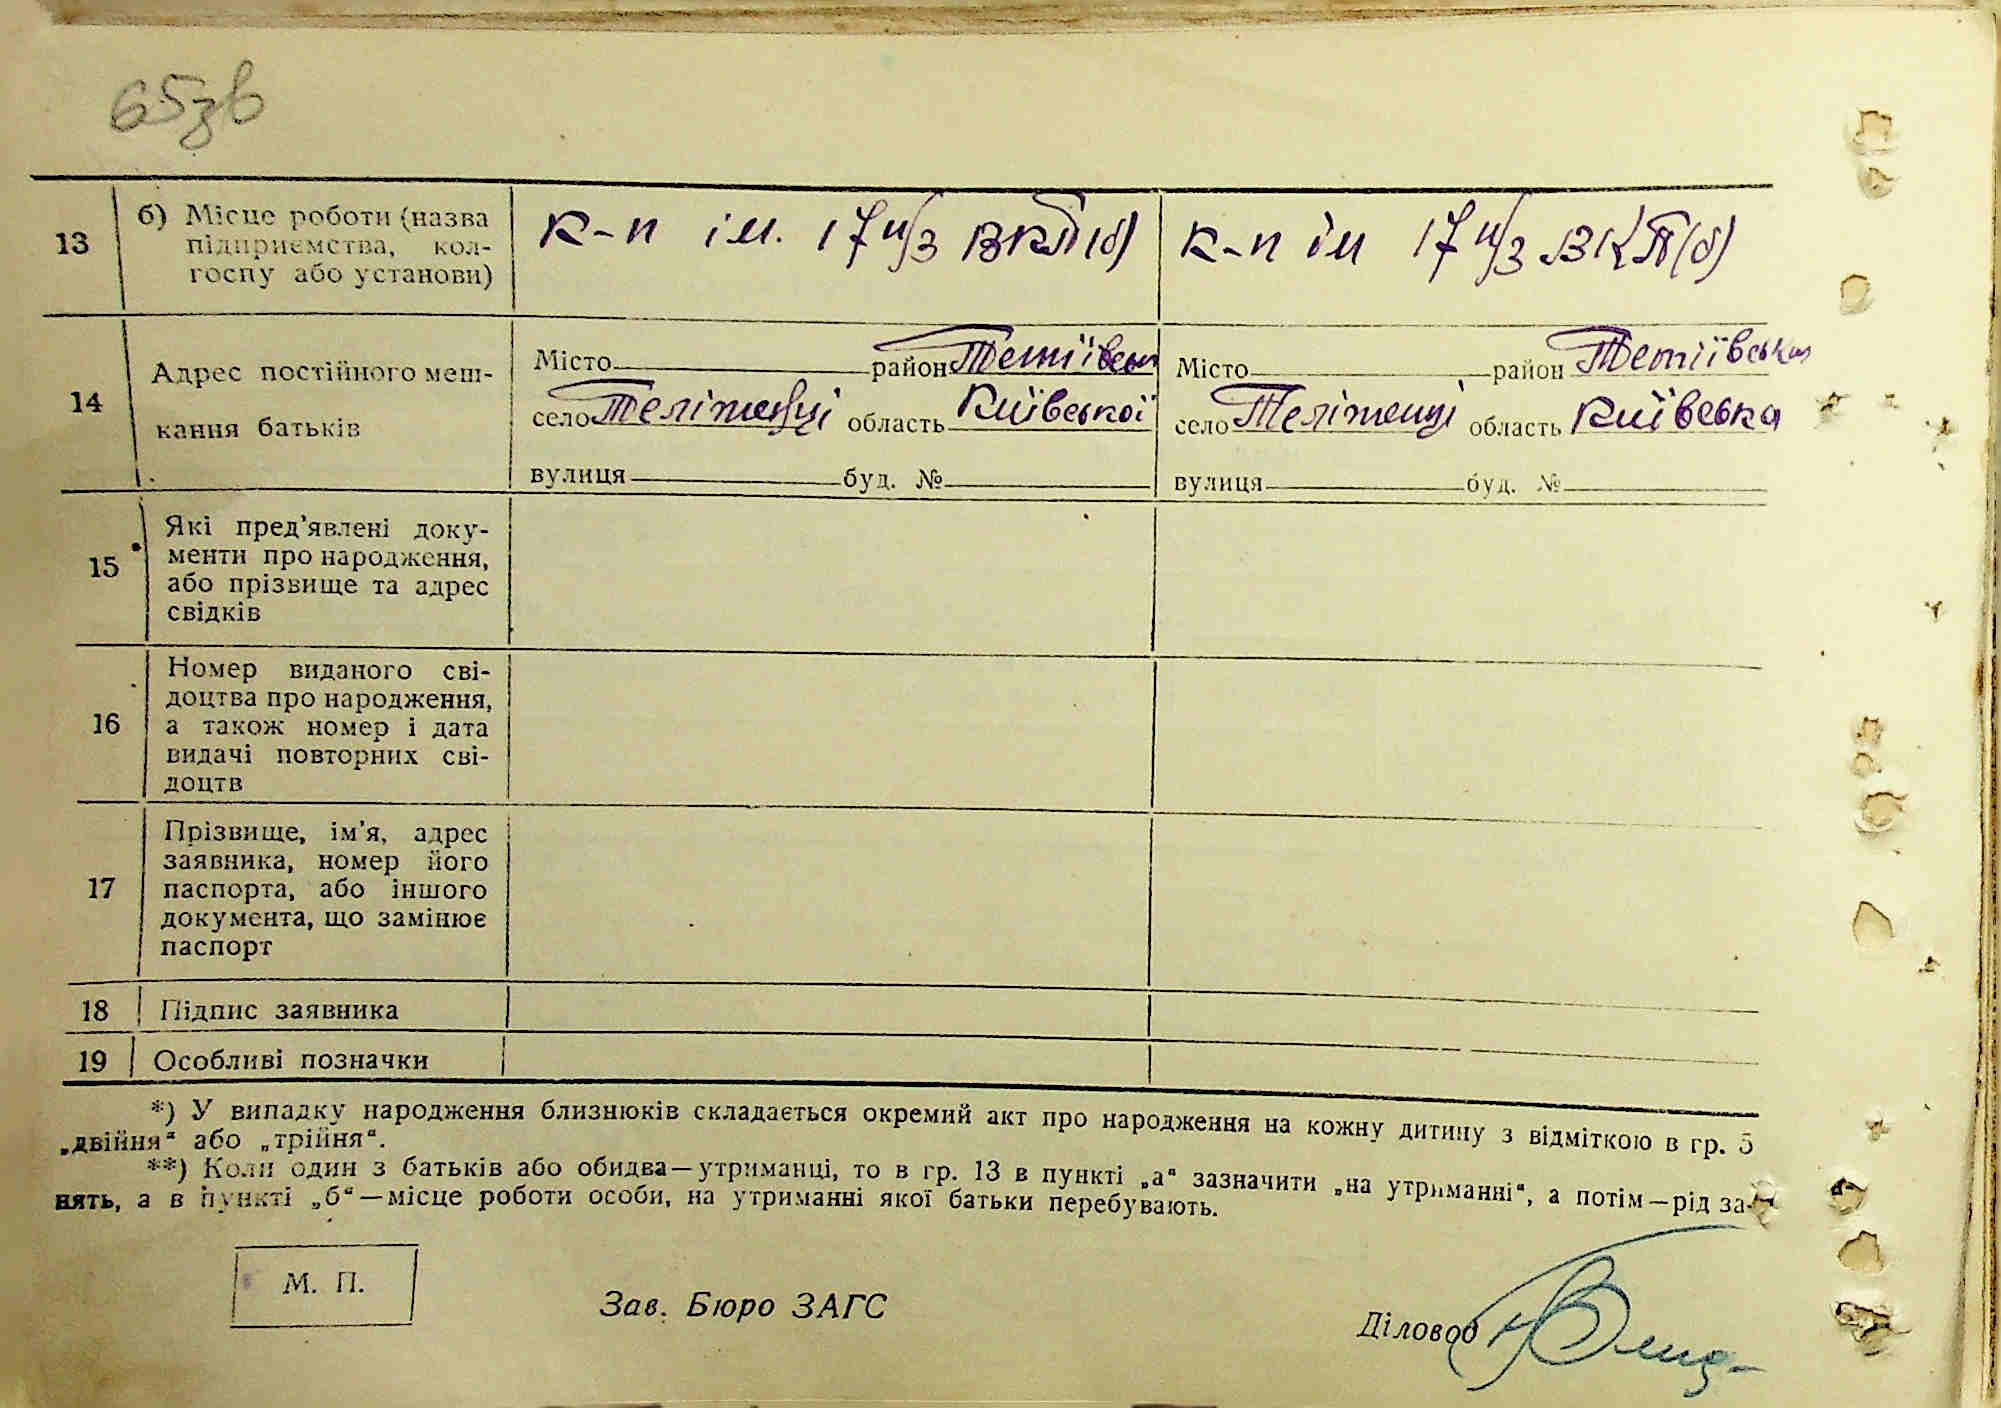 65зв
13
б) Місце роботи (назва
підприємства, кол-
госпу або установи)
к-п ім. 17 п/з ВКП(б)
к-п ім 17 п/з ВКП(б)
14
Адрес постійного меш-
кання батьків
Місто район Тетіївськ
село Теліженці область Київської
вулиця буд. №
Місто район Тетіївськи
село Теліженці область Київська
вулиця буд. №
15
Які пред'явлені доку-
менти про народження,
або прізвище та адрес
свідків
16
Номер виданого сві-
доцтва про народження,
а також номер і дата
видачі повторних сві-
доцтв
17
Прізвище, ім'я, адрес
заявника, номер його
паспорта, або іншого
документа, що замінює
паспорт
18 Підпис заявника
19 Особливі позначки
*) У випадку народження близнюків складається окремий акт про народження на кожну дитину з відміткою в гр. 5
„двійня“ або „трійня“.
**) Коли один з батьків або обидва—утриманці, то в гр. 13 в пункті „а“ зазначити „на утриманні“, а потім—рід за-
нять, а в пункті „б“—місце роботи особи, на утриманні якої батьки перебувають.
М. П.
Зав. Бюро ЗАГС
Діловод